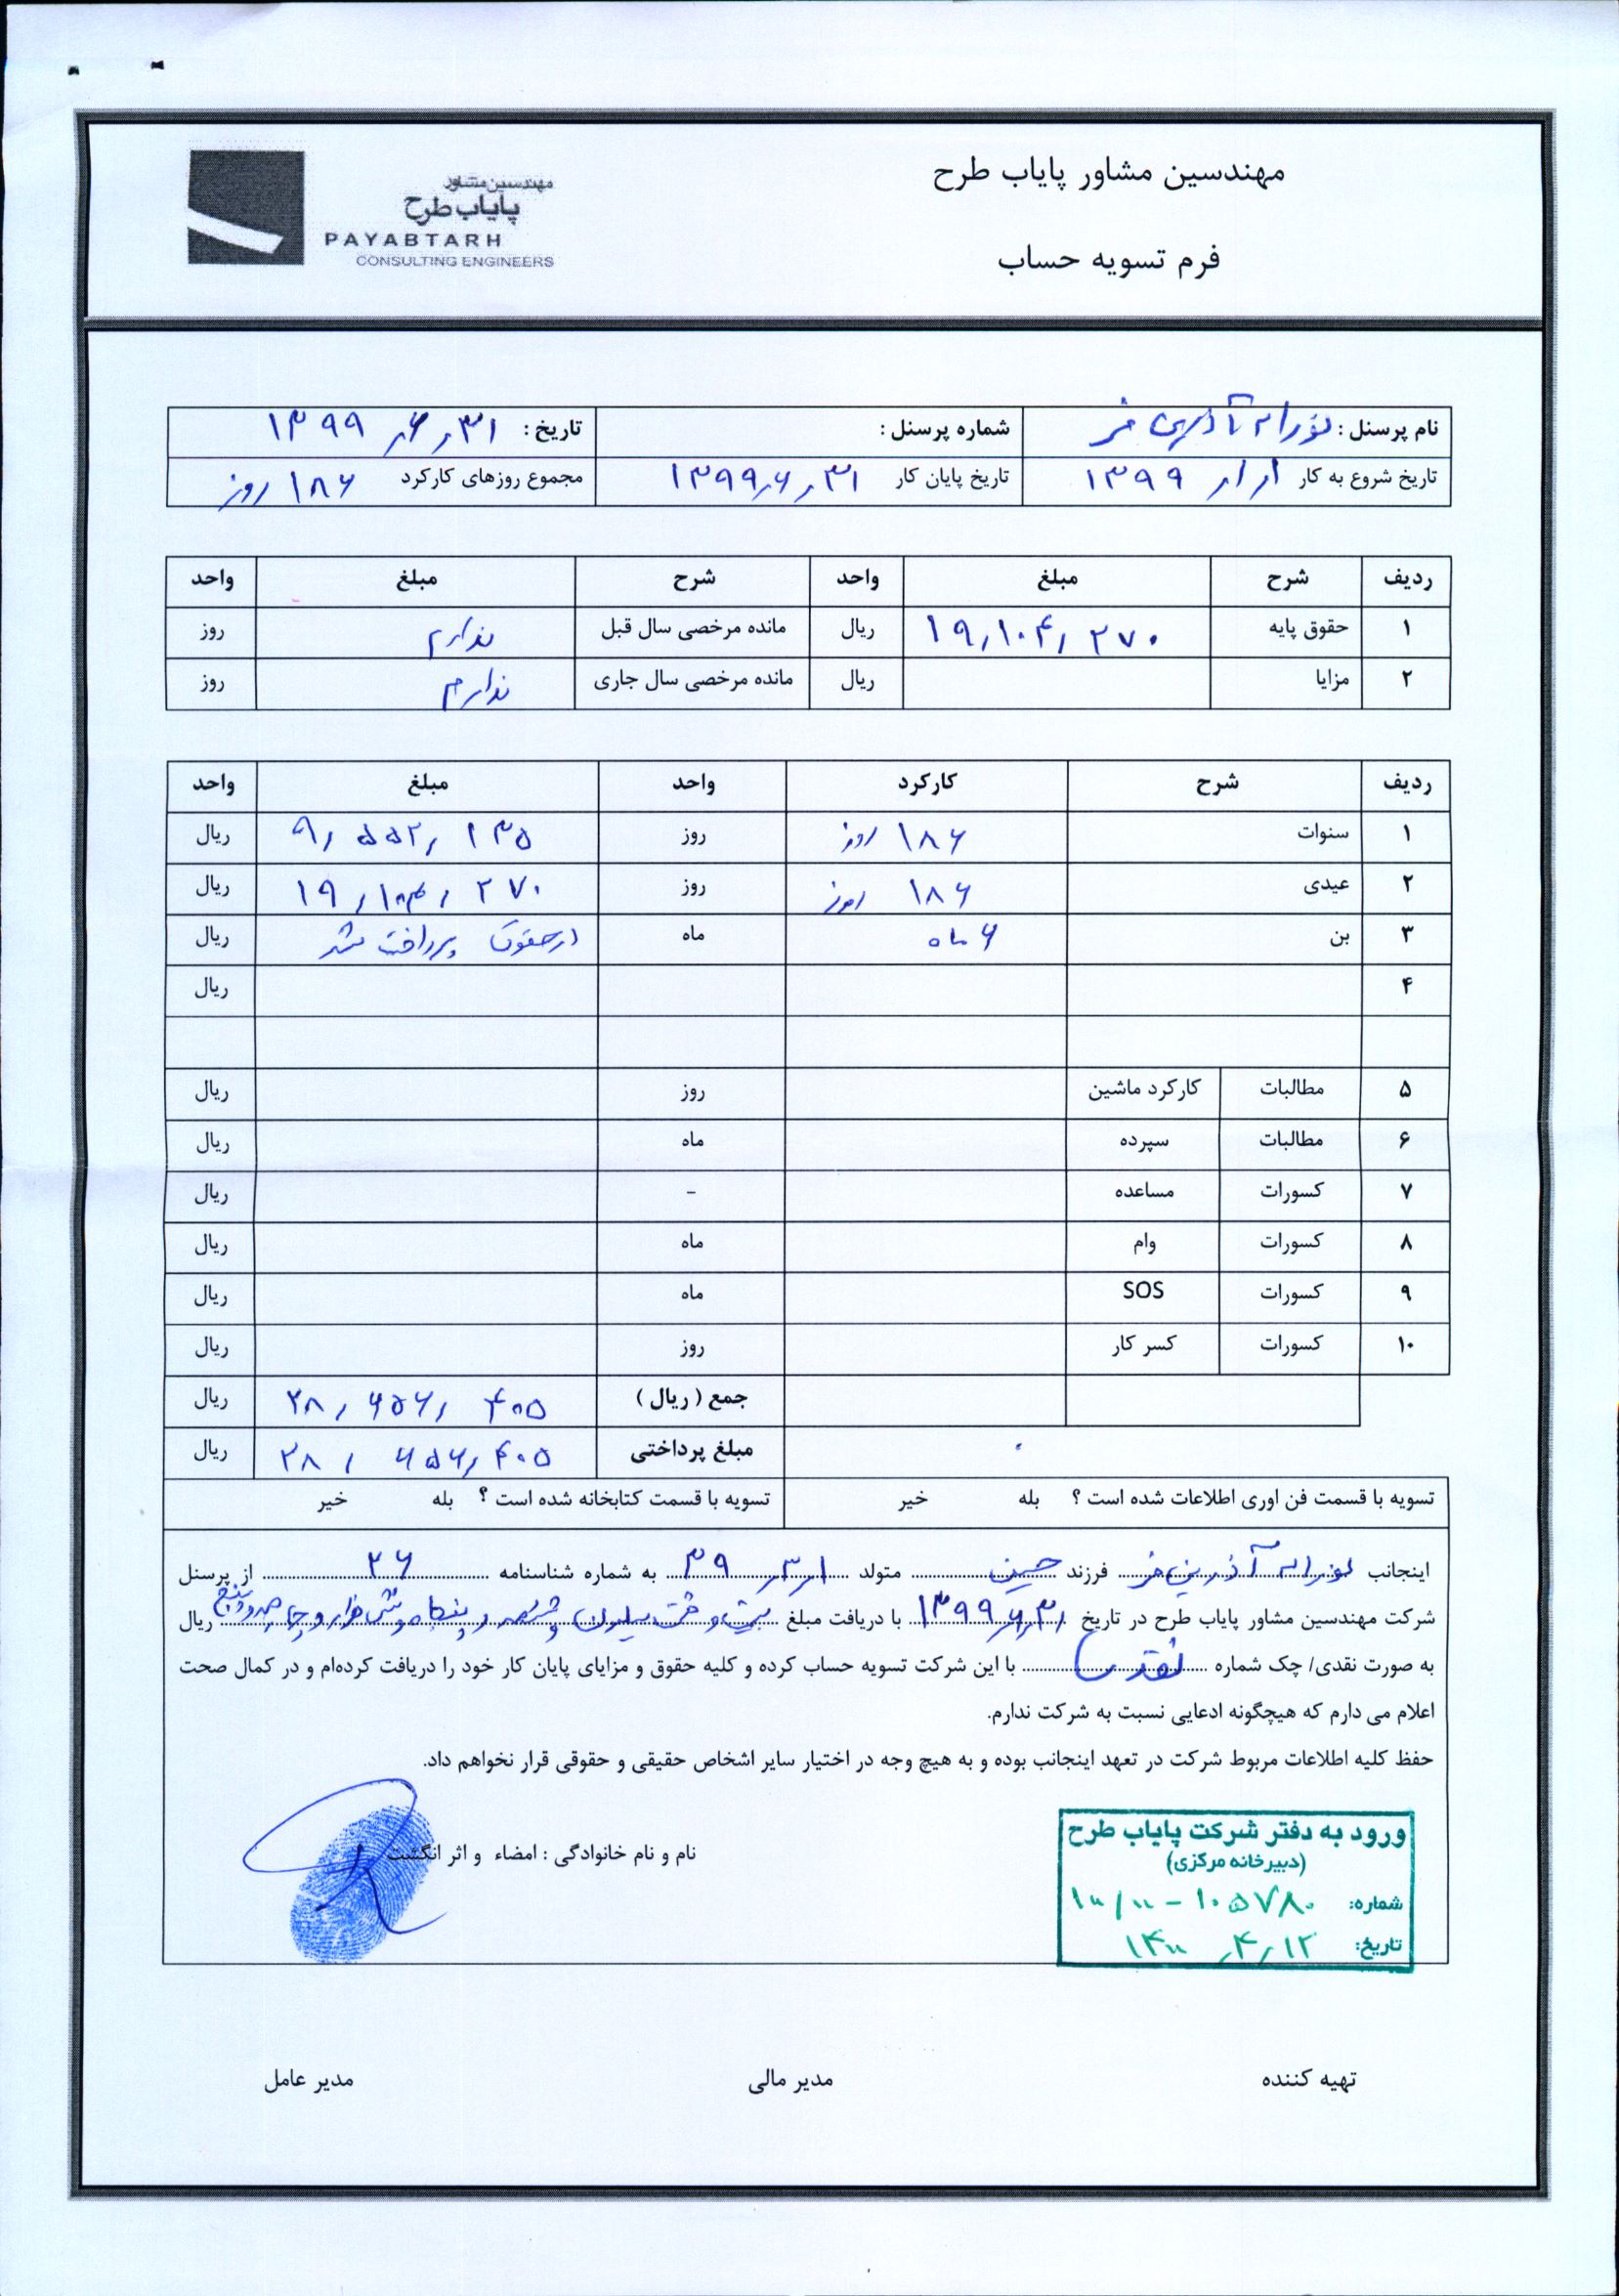 مهندسین مشاور پایاب طرح
فرم تسویه حساب
مهندسین مشاور
پایاب طرح
PAYABTARH
CONSULTING ENGINEERS
نام پرسنل : شماره پرسنل : تاریخ : ۱۳۹۹٫۶٫۳۱
تاریخ شروع به کار ۱۳۹۹٫۱٫۱ تاریخ پایان کار ۱۳۹۹٫۶٫۳۱ مجموع روزهای کارکرد ۱۸۶ روز
ردیف شرح مبلغ واحد شرح مبلغ واحد
۱ حقوق پایه ۱۹٫۱۰۴٫۲۷۰ ریال مانده مرخصی سال قبل ندارم روز
۲ مزایا ریال مانده مرخصی سال جاری ندارم روز
ردیف شرح کارکرد واحد مبلغ واحد
۱ سنوات ۱۸۶ روز روز ۹٫۵۵۲٫۱۳۵ ریال
۲ عیدی ۱۸۶ روز روز ۱۹٫۱۰۴٫۲۷۰ ریال
۳ بن ۶ ماه ماه در حقوق پرداخت شد ریال
۴ ریال
۵ مطالبات کارکرد ماشین روز ریال
۶ مطالبات سپرده ماه ریال
۷ کسورات مساعده - ریال
۸ کسورات وام ماه ریال
۹ کسورات SOS ماه ریال
۱۰ کسورات کسر کار روز ریال
جمع ( ریال ) ۲۸٫۶۵۶٫۴۰۵ ریال
مبلغ پرداختی ۲۸٫۶۵۶٫۴۰۵ ریال
تسویه با قسمت فن اوری اطلاعات شده است ؟ بله خیر تسویه با قسمت کتابخانه شده است ؟ بله خیر
اینجانب فرزند حسین متولد ۳۹٫۳٫۱ به شماره شناسنامه ۲۶ از پرسنل
شرکت مهندسین مشاور پایاب طرح در تاریخ ۱۳۹۹٫۶٫۳۱ با دریافت مبلغ بیست و هشت میلیون و ششصد و پنجاه و شش هزار و چهارصد و پنج ریال
به صورت نقدی/ چک شماره نقدی با این شرکت تسویه حساب کرده و کلیه حقوق و مزایای پایان کار خود را دریافت کرده‌ام و در کمال صحت
اعلام می دارم که هیچگونه ادعایی نسبت به شرکت ندارم.
حفظ کلیه اطلاعات مربوط شرکت در تعهد اینجانب بوده و به هیچ وجه در اختیار سایر اشخاص حقیقی و حقوقی قرار نخواهم داد.
نام و نام خانوادگی : امضاء و اثر انگشت
ورود به دفتر شرکت پایاب طرح
(دبیرخانه مرکزی)
شماره: ۱۰۵۷۸۰
تاریخ: ۱۴۰۰٫۴٫۱۲
تهیه کننده مدیر مالی مدیر عامل